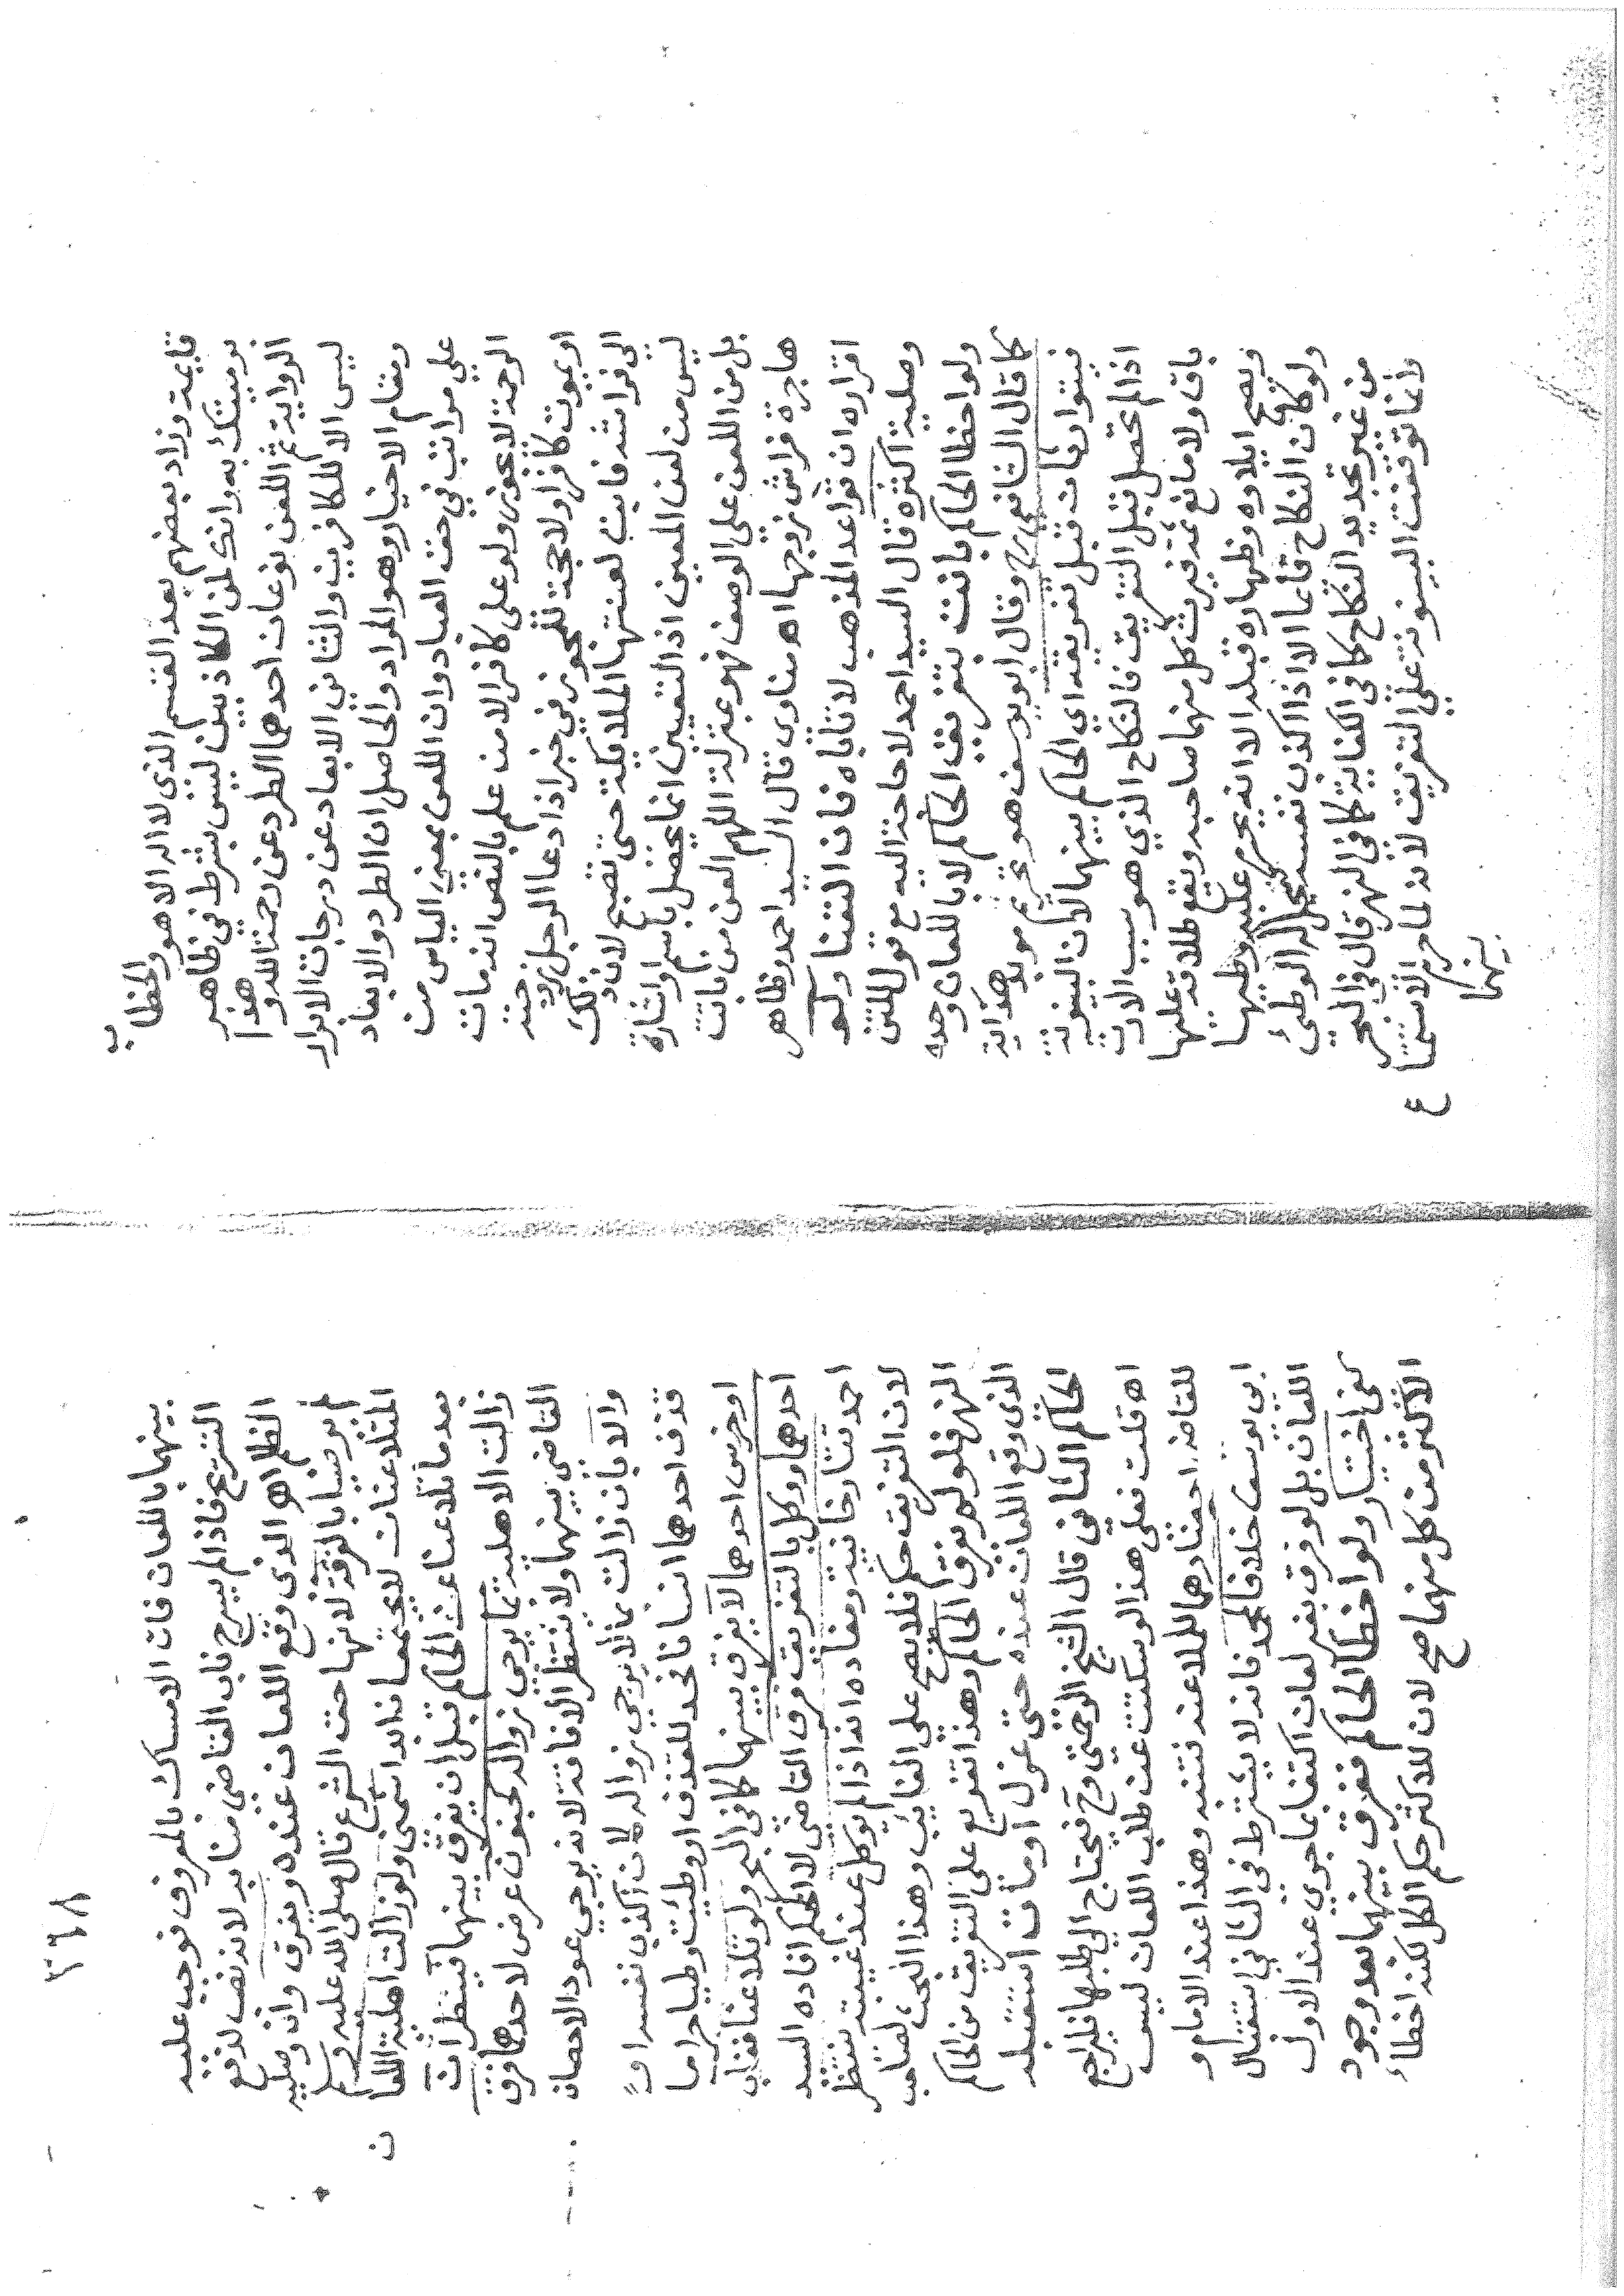 قايمة وزاد بعضهم بعد القسم الذي لا اله الا هو والخطا
ب
بوميتك به وانك لمن الكاذبين ليس بشرط في ظاهر
الرواية ثم اللعن نوعان احدهما الطرد عن رحمة الله وهذا
ليس الا للكافرين والثاني الابعاد عن درجات الابرار
ومقام الاخيار وهو المراد والحاصل ان الطرد والابعاد
على مراتب في حق العباد وان اللعن بمعنى الياس من
الرحمة لا يجوز ولو على كافر الا من علم بالنص انه مات
او يموت كافرا ولا حجة للمجوز في خبر اذا دعا الرجل زوجته
الى فراشه فابت لعنتها الملائكة حتى تصبح لان ذلك
ليس من لعن المعين اذ التعيين انما يحصل باسم او اشارة
بل من اللعن على الوصف فهو بمنزلة اللهم العن من باتت
هاجرة فراش زوجها اه مناوي قال السيد احمد وظاهر
اقراره ان قواعد المذهب لا تاباه فان التفتا ولو
وصلية اكثره قال السيد احمد لا حاجة اليه مع قول المتن
ولو اخطا الحاكم بانت بتفريق الحاكم لا باللعان وحده
كما قال الشافعي رح وقال ابو يوسف هو تحريم مؤبد هداية
فيتوارثان قبل تفريقه اي الحاكم بينهما لان البينونة
اذا لم تحصل قبل التفريق فالنكاح الذي هو سبب الارث
باق ولا مانع ثمه فيرث كل منهما صاحبه ويقع طلاقه عليها
ويصح ايلاوه وظهاره قبله الا انه يحرم عليه وطيها
ولو كان النكاح قايما الا اذا اكذب نفسه فيحل له الوطئ
من غير تجديد النكاح كما في الكفاية كما في النهر قال في البحر
وانما توقفت البينونة على التفريق لانه لما حرم الاستمتا ع
بينهما
٣٦٨
بينهما باللعان فات الامساك بالمعروف فوجب عليه
التسريح فاذا لم يسرح ناب القاضي منابه لانه نصب لدفع
الظلم اهـ الذي وقع اللعان عنده ويفرق وان وصلية
لم يرضيا بالفرقة لانها حق الشرع قال صلى الله عليه وسلم
المتلاعنان لا يجتمعان ابدا شمني ولو زالت اهلية اللعا ن
بعد ما تلاعنا عند الحاكم قبل ان يفرق بينهما فينظر ان
زالت الاهلية بما يرجى زواله كجنون عرض لاحدهما فرق
القاضي بينهما ولا ينتظر الافاقة لانه يرجى عود الاحصان
والا بان زالت بما لا يرجى زواله كان اكذب نفسه او
قذف احدهما انسانا فحد للقذف او وطئت وطيا حراما
او خرس احدهما لا يفرق بينهما كما في البحر ولو تلاعنا فغاب
احدهما ووكل بالتفريق فرق القاضي لا الحكم افاده السيد
احمد تتارخانية ومفاده انه اذا لم يوكل عند غيبته ننتظر
لان التفريق حكم فلا يصح على الغايب وهذا البحث لصاحب
النهر فلو لم يفرق الحاكم وهذا تفريع على التفريق من الحاكم
الذي وقع اللعان عنده حتى عزل او مات استقبله
الحاكم الثاني قال الشيخ الرحمتي وح فيحتاج الى طلبها فليراجع
اه قلت فعلى هذا لو سكتت عن طلب اللعان ليس
للقاضي احضارهما للملاعنة فتنبه وهذا عند الامام و
ابي يوسف خلافا لمحمد فانه لا يشترط في الثاني استقبال
اللعان بل لو فرق بغير لعان اكتفا بما جرى عند الاول
كفى اختيار ولو اخطا الحاكم ففرق بينهما بعد وجود
الاكثر من كل منهما صح لان للاكثر حكم الكل لكنه اخطأ